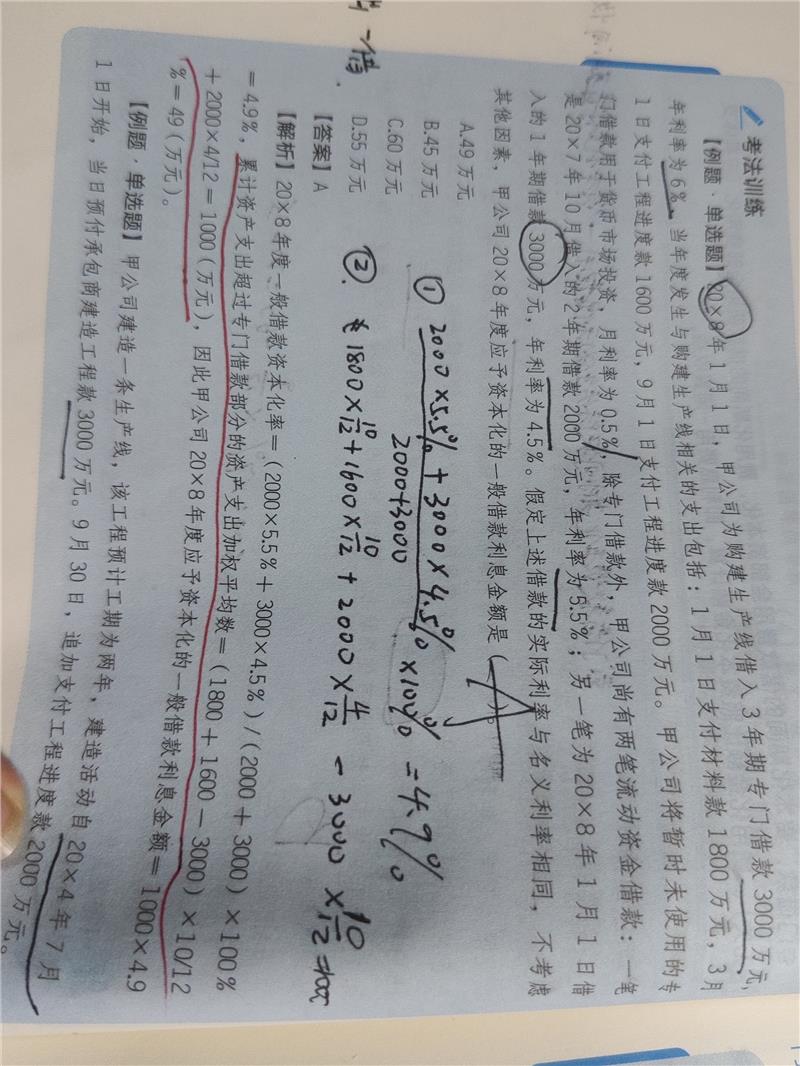 考法训练
【例题·单选题】20×8年1月1日，甲公司为购建生产线借入3年期专门借款3000万元，
年利率为6%。当年度发生与购建生产线相关的支出包括：1月1日支付材料款1800万元，3月
1日支付工程进度款1600万元，9月1日支付工程进度款2000万元。甲公司将暂时未使用的专
门借款用于货币市场投资，月利率为0.5%，除专门借款外，甲公司尚有两笔流动资金借款：一笔
是20×7年10月借入的2年期借款2000万元，年利率为5.5%；另一笔为20×8年1月1日借
入的1年期借款3000万元，年利率为4.5%。假定上述借款的实际利率与名义利率相同，不考虑
其他因素，甲公司20×8年度应予资本化的一般借款利息金额是（A）。
A.49万元
B.45万元
C.60万元
D.55万元
① 2000×5.5%+3000×4.5%
2000+3000
×100% =4.9%
② 1800×10/12+1600×10/12+2000×4/12-3000×10/12
【答案】A
【解析】20×8年度一般借款资本化率=（2000×5.5%+3000×4.5%）/（2000+3000）×100%
=4.9%，累计资产支出超过专门借款部分的资产支出加权平均数=（1800+1600-3000）×10/12
+2000×4/12=1000（万元），因此甲公司20×8年度应予资本化的一般借款利息金额=1000×4.9
%=49（万元）。
【例题·单选题】甲公司建造一条生产线，该工程预计工期为两年，建造活动自20×4年7月
1日开始，当日预付承包商建造工程款3000万元。9月30日，追加支付工程进度款2000万元。